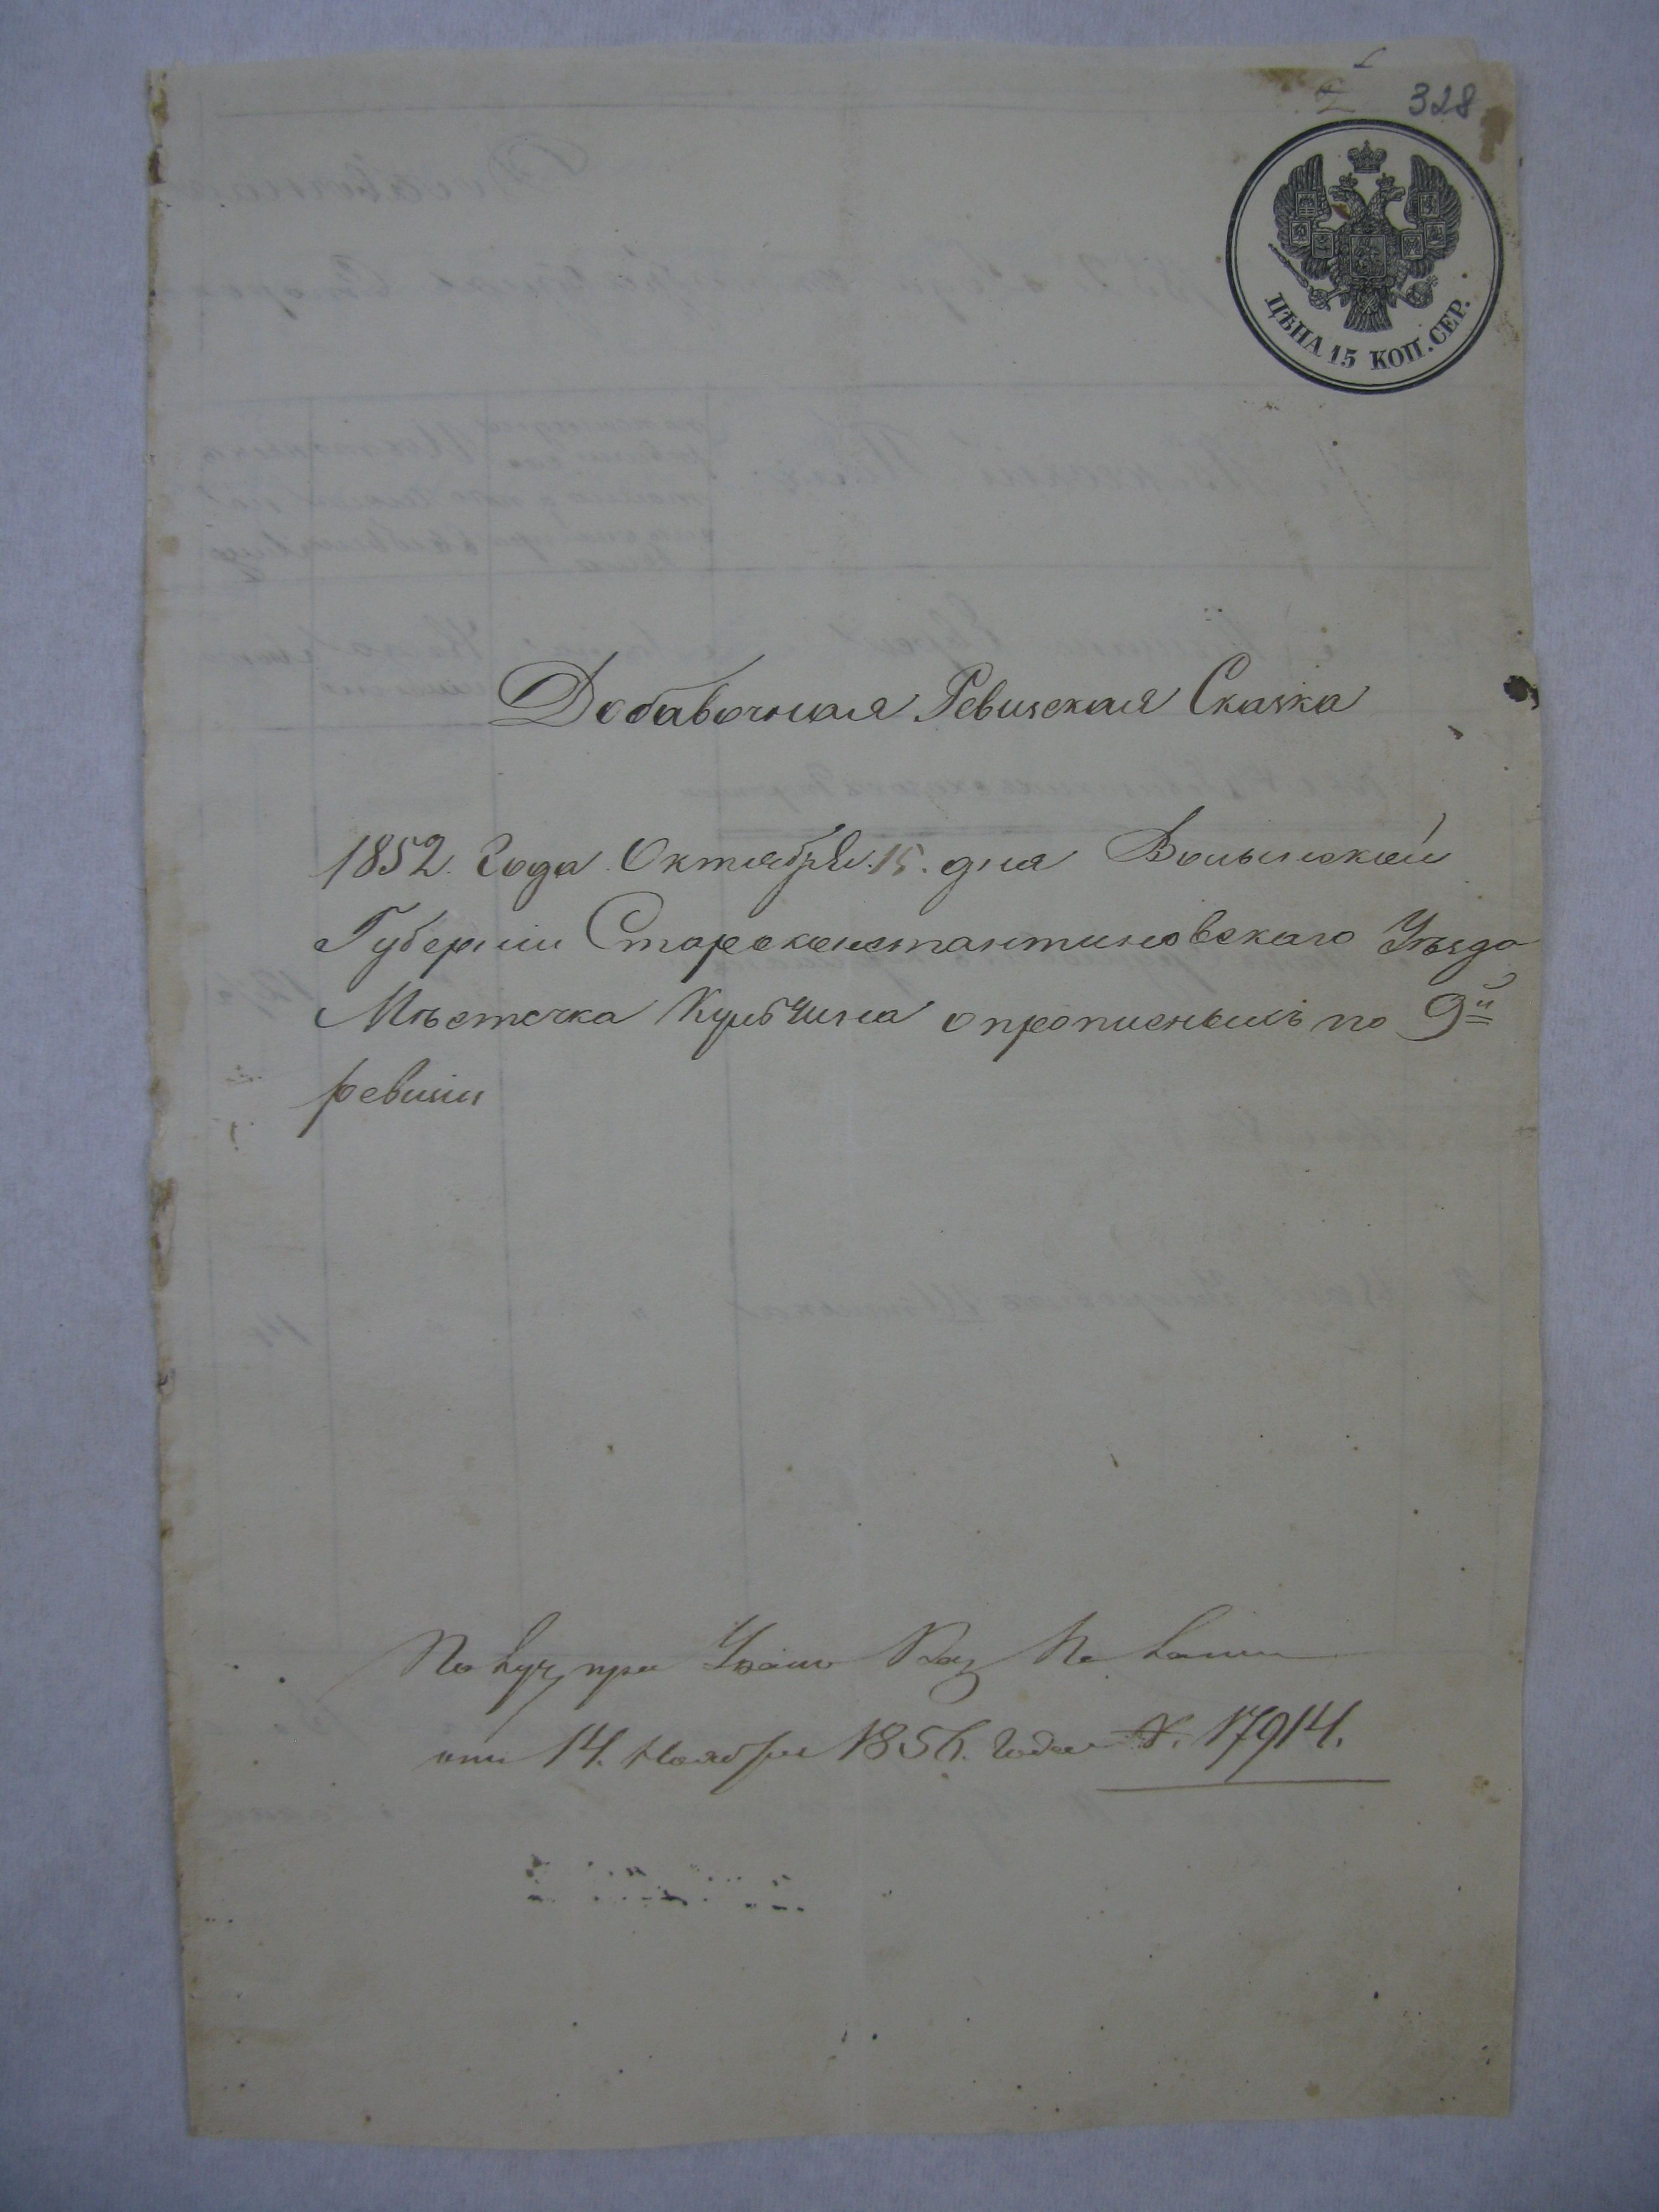 328
ЦѢНА 15 КОП. СЕР.
Добавочная Ревизская Сказка
1852. Года Октября 15. дня Волынской
Губерніи Староконстантиновскаго Уѣзда
Мѣстечка Кульчина о прописныхъ по 9й
ревизіи
при
отъ 14. Ноября 1856. Года № 17914.